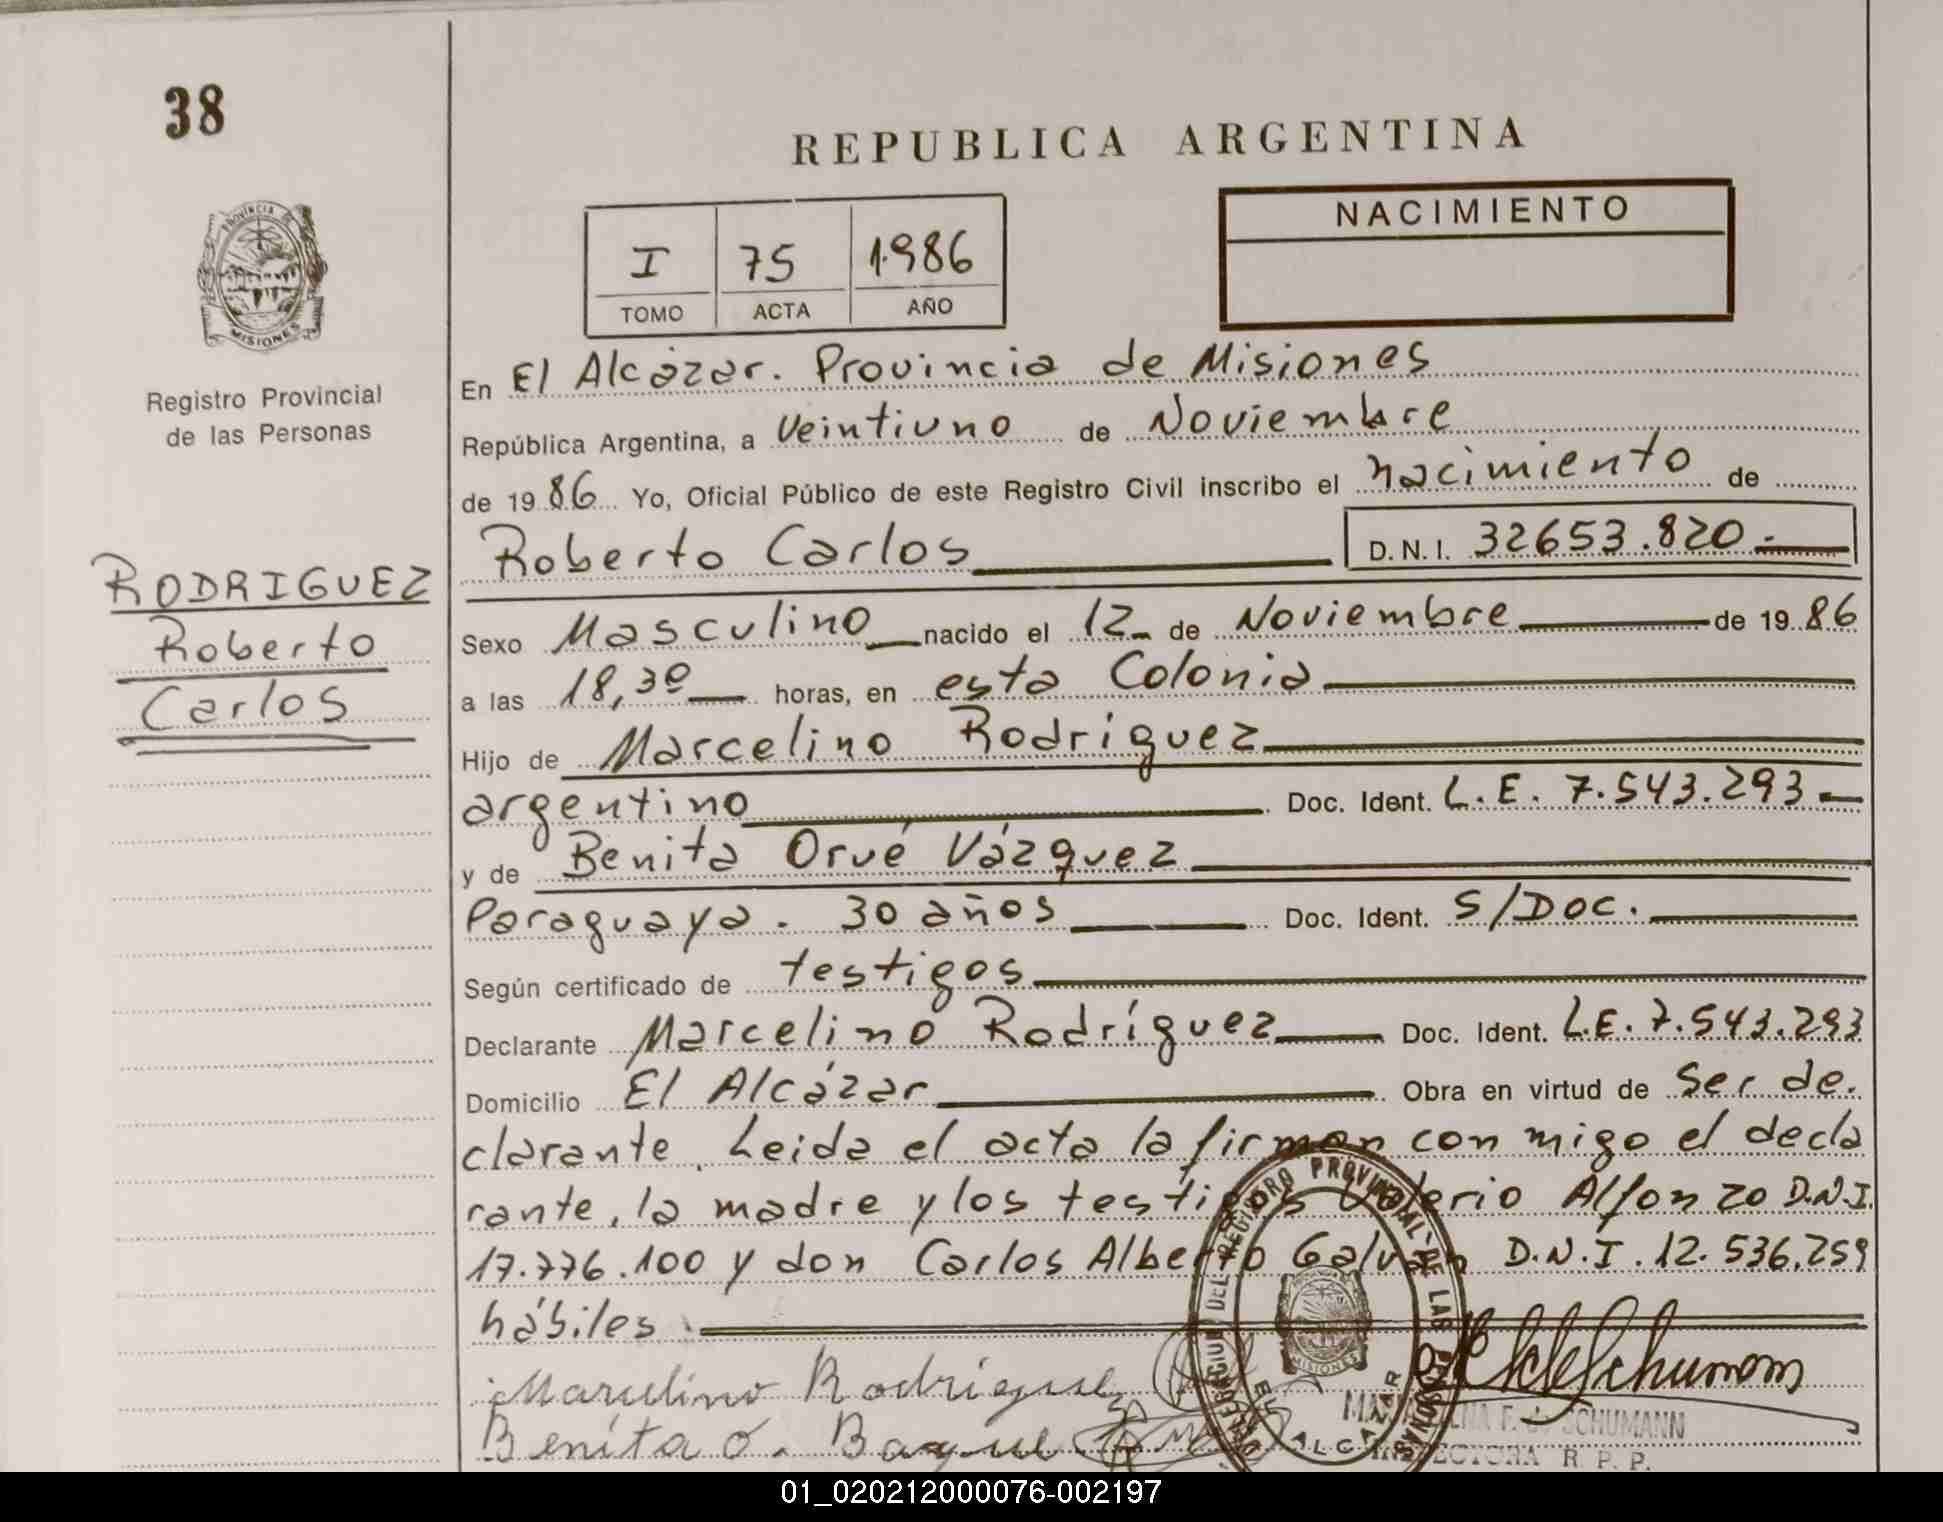 38
REPUBLICA ARGENTINA
NACIMIENTO
I 75 1.986
TOMO ACTA AÑO
PROVINCIA DE
MISIONES
Registro Provincial
de las Personas
RODRIGUEZ
Roberto
Carlos
En El Alcázar. Provincia de Misiones
República Argentina, a Veintiuno de Noviembre
de 19 86 Yo, Oficial Público de este Registro Civil inscribo el nacimiento de
Roberto Carlos D.N.I. 32653.820.-
Sexo Masculino nacido el 12 de Noviembre de 19 86
a las 18,30 horas, en esta Colonia
Hijo de Marcelino Rodriguez
argentino Doc. Ident. L.E. 7.543.293
y de Benita Orué Vázquez
Paraguaya. 30 años Doc. Ident. S/Doc.
Según certificado de testigos
Declarante Marcelino Rodríguez Doc. Ident. L.E. 7.543.293
Domicilio El Alcázar Obra en virtud de Ser de.
clarante. Leida el acta la firman con migo el decla
rante, la madre y los testigos Valerio Alfonzo D.N.I.
17.776.100 y don Carlos Alberto Galván D.N.I. 12.536.259
hábiles.
Marcelino Rodriguez
Benita O.
DELEGACION DEL REGISTRO PROVINCIAL DE LAS PERSONAS
MISIONES
EL ALCAZAR
SCHUMANN
R. P. P.
01_020212000076-002197